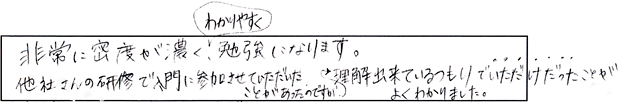 わかりやすく
非常に密度が濃く、勉強になります。
他社さんの研修で入門に参加させていただいた
ことがあったのですが、理解出来ているつもりでいただけだったことが
よくわかりました。